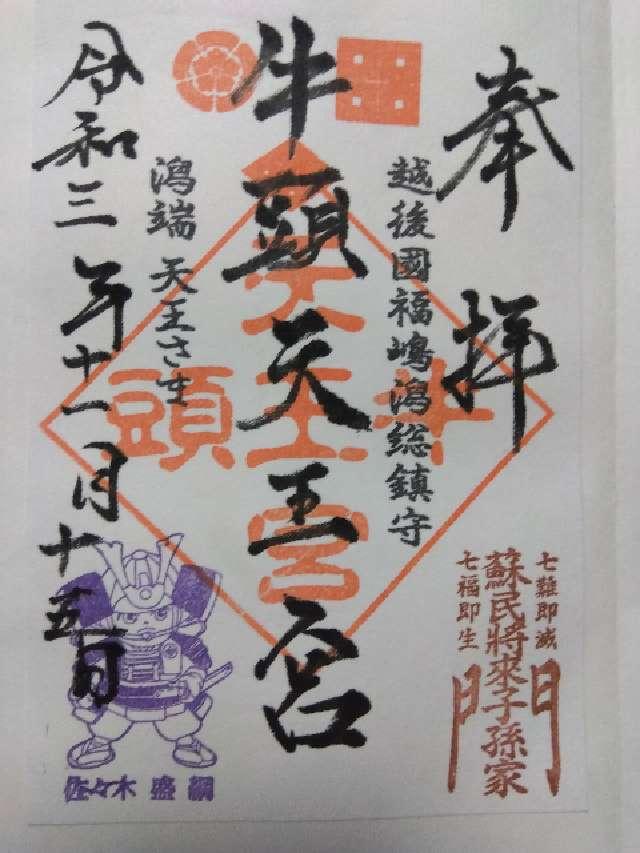 奉拝
越後國福嶋潟総鎮守
牛頭天王宮
潟端 天王さま
令和三年十一月十五日
牛頭天王宮
七難即滅
蘇民將來子孫家門
七福即生
佐々木 盛綱